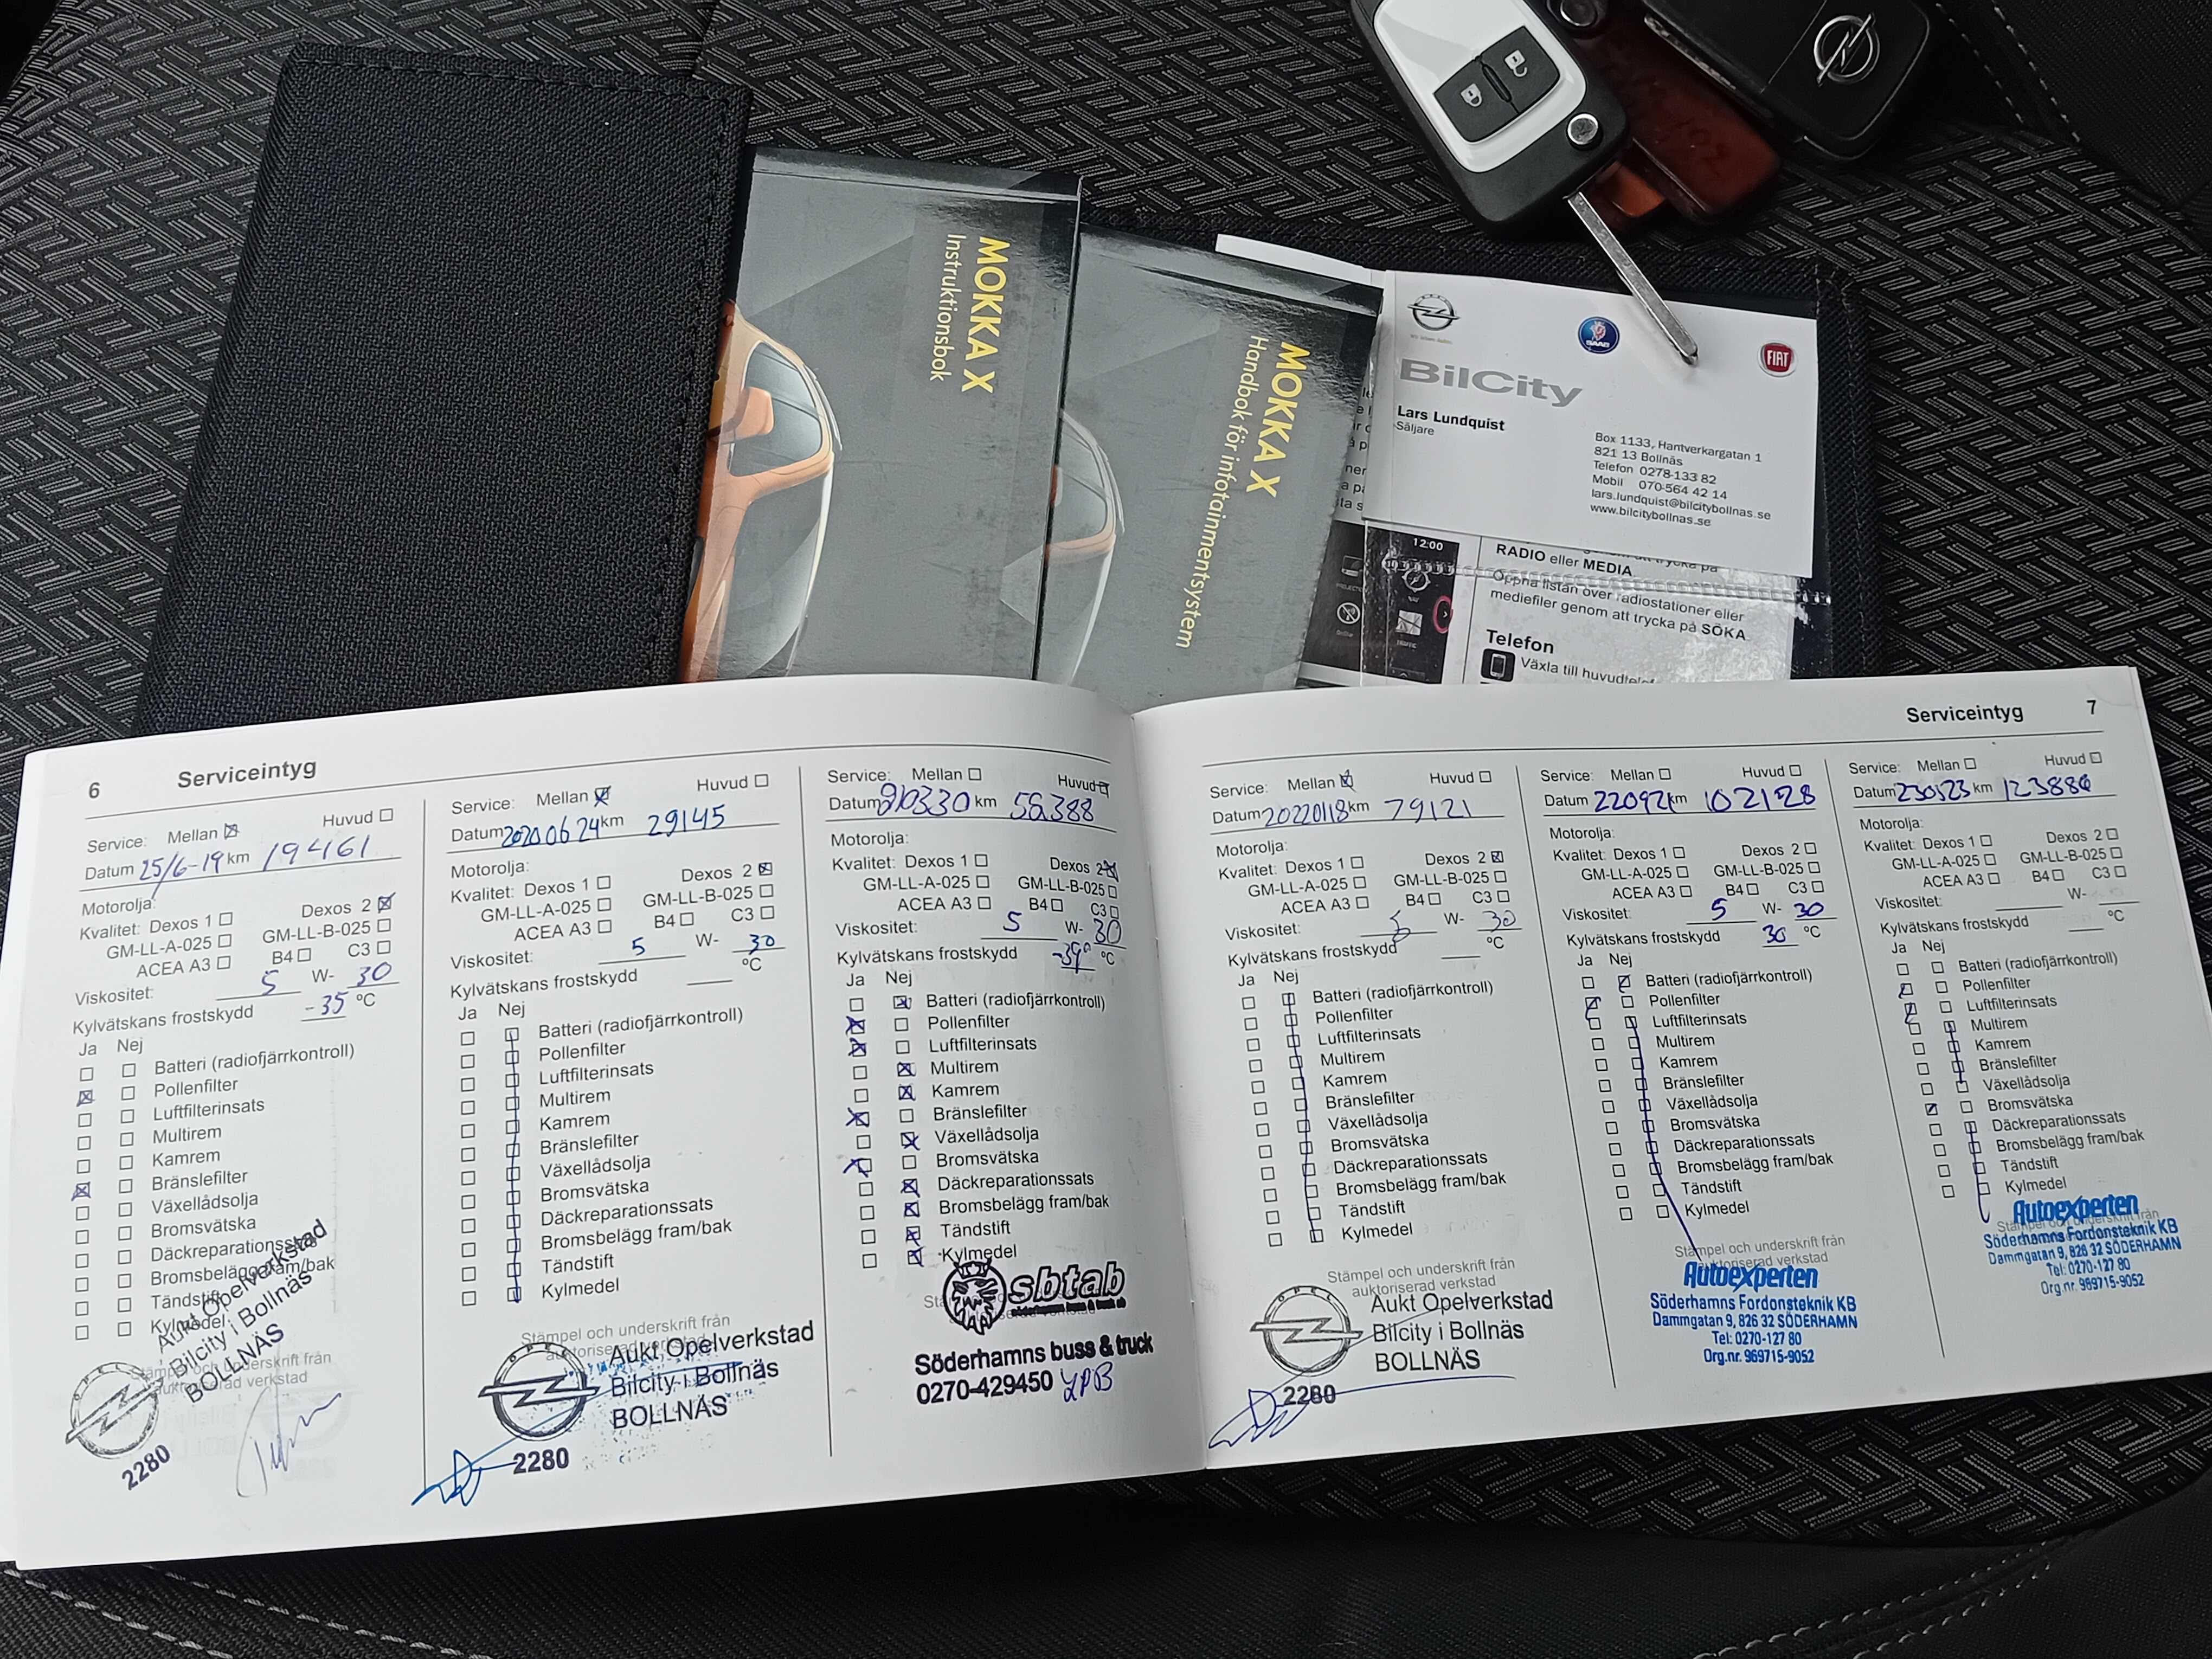 MOKKA X
Instruktionsbok
MOKKA X
Handbok för infotainmentsystem
SAAB
FIAT
BilCity
Lars Lundquist
Säljare
Box 1133, Hantverkargatan 1
821 13 Bollnäs
Telefon 0278-133 82
Mobil 070-564 42 14
lars.lundquist@bilcitybollnas.se
www.bilcitybollnas.se
12:00
RADIO eller MEDIA
Öppna listan över radiostationer eller
mediefiler genom att trycka på SÖKA.
Telefon
Växla till
6 Serviceintyg
Service: Mellan Huvud
Datum 25/6-19 km 19461
Motorolja:
Kvalitet: Dexos 1 Dexos 2
GM-LL-A-025 GM-LL-B-025
ACEA A3 B4 C3
Viskositet: 5 W- 30
Kylvätskans frostskydd -35 °C
Ja Nej
Batteri (radiofjärrkontroll)
Pollenfilter
Luftfilterinsats
Multirem
Kamrem
Bränslefilter
Växellådsolja
Bromsvätska
Däckreparationssats
Bromsbelägg fram/bak
Tändstift
Kylmedel
Stämpel och underskrift från
auktoriserad verkstad
OPEL
Aukt Opelverkstad
Bilcity i Bollnäs
BOLLNÄS
2280
Service: Mellan Huvud
Datum 20200624 km 29145
Motorolja:
Kvalitet: Dexos 1 Dexos 2
GM-LL-A-025 GM-LL-B-025
ACEA A3 B4 C3
Viskositet: 5 W- 30
Kylvätskans frostskydd °C
Ja Nej
Batteri (radiofjärrkontroll)
Pollenfilter
Luftfilterinsats
Multirem
Kamrem
Bränslefilter
Växellådsolja
Bromsvätska
Däckreparationssats
Bromsbelägg fram/bak
Tändstift
Kylmedel
Stämpel och underskrift från
auktoriserad verkstad
OPEL
Aukt Opelverkstad
Bilcity i Bollnäs
BOLLNÄS
2280
Service: Mellan Huvud
Datum 210330 km
Motorolja:
Kvalitet: Dexos 1 Dexos 2
GM-LL-A-025 GM-LL-B-025
ACEA A3 B4 C3
Viskositet: 5 W- 30
Kylvätskans frostskydd °C
Ja Nej
Batteri (radiofjärrkontroll)
Pollenfilter
Luftfilterinsats
Multirem
Kamrem
Bränslefilter
Växellådsolja
Bromsvätska
Däckreparationssats
Bromsbelägg fram/bak
Tändstift
Kylmedel
sbtab
söderhamns buss & truck ab
Söderhamns buss & truck
0270-429450
Serviceintyg 7
Service: Mellan Huvud
Datum 20220118 km 79121
Motorolja:
Kvalitet: Dexos 1 Dexos 2
GM-LL-A-025 GM-LL-B-025
ACEA A3 B4 C3
Viskositet: 5 W- 30
Kylvätskans frostskydd °C
Ja Nej
Batteri (radiofjärrkontroll)
Pollenfilter
Luftfilterinsats
Multirem
Kamrem
Bränslefilter
Växellådsolja
Bromsvätska
Däckreparationssats
Bromsbelägg fram/bak
Tändstift
Kylmedel
Stämpel och underskrift från
auktoriserad verkstad
OPEL
Aukt Opelverkstad
Bilcity i Bollnäs
BOLLNÄS
2280
Service: Mellan Huvud
Datum 220921 km 102128
Motorolja:
Kvalitet: Dexos 1 Dexos 2
GM-LL-A-025 GM-LL-B-025
ACEA A3 B4 C3
Viskositet: 5 W- 30
Kylvätskans frostskydd 30 °C
Ja Nej
Batteri (radiofjärrkontroll)
Pollenfilter
Luftfilterinsats
Multirem
Kamrem
Bränslefilter
Växellådsolja
Bromsvätska
Däckreparationssats
Bromsbelägg fram/bak
Tändstift
Kylmedel
Stämpel och underskrift från
auktoriserad verkstad
Autoexperten
Söderhamns Fordonsteknik KB
Dammgatan 9, 826 32 SÖDERHAMN
Tel: 0270-127 80
Org.nr. 969715-9052
Service: Mellan Huvud
Datum 230523 km 123886
Motorolja:
Kvalitet: Dexos 1 Dexos 2
GM-LL-A-025 GM-LL-B-025
ACEA A3 B4 C3
Viskositet: W-
Kylvätskans frostskydd °C
Ja Nej
Batteri (radiofjärrkontroll)
Pollenfilter
Luftfilterinsats
Multirem
Kamrem
Bränslefilter
Växellådsolja
Bromsvätska
Däckreparationssats
Bromsbelägg fram/bak
Tändstift
Kylmedel
Stämpel och underskrift från
Autoexperten
Söderhamns Fordonsteknik KB
Dammgatan 9, 826 32 SÖDERHAMN
Tel: 0270-127 80
Org.nr. 969715-9052